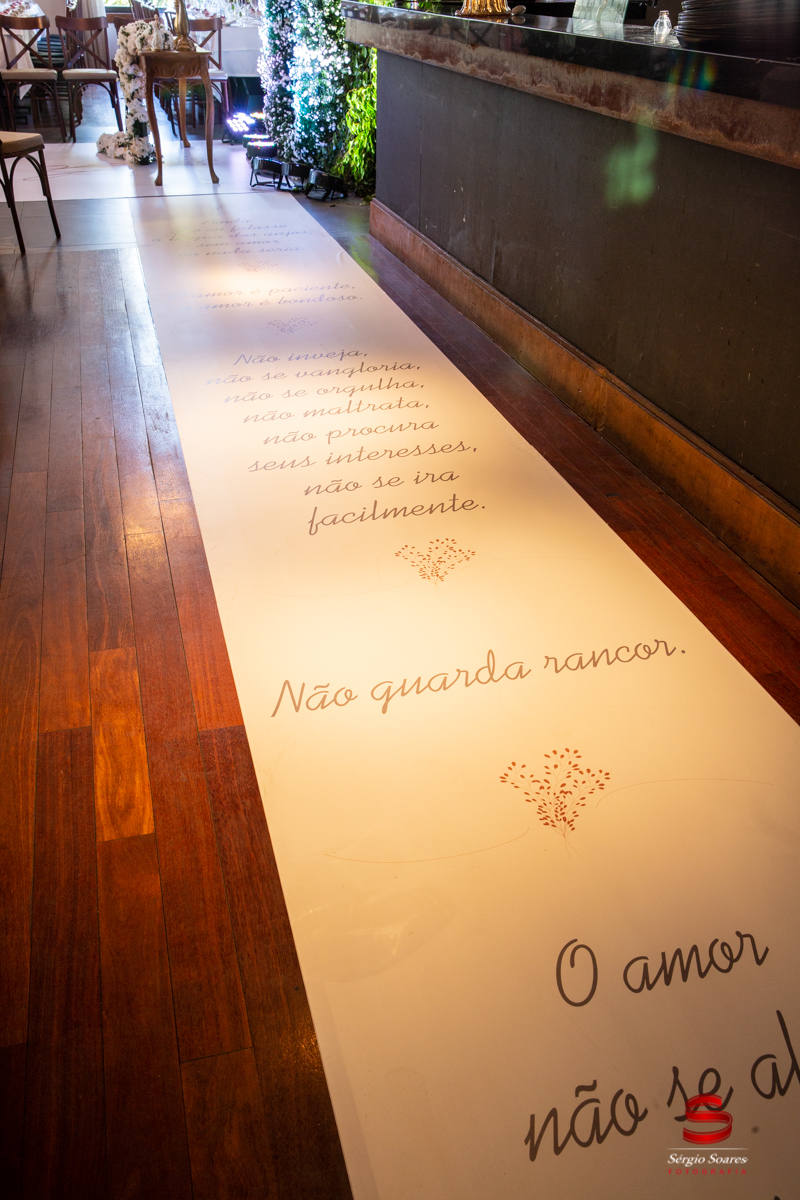 sem amor
amor é paciente,
amor é bondoso.
Não inveja,
não se vangloria,
não se orgulha,
não maltrata,
não procura
seus interesses,
não se ira
facilmente.
Não guarda rancor.
O amor
não se al
Sérgio Soares
FOTOGRAFIA